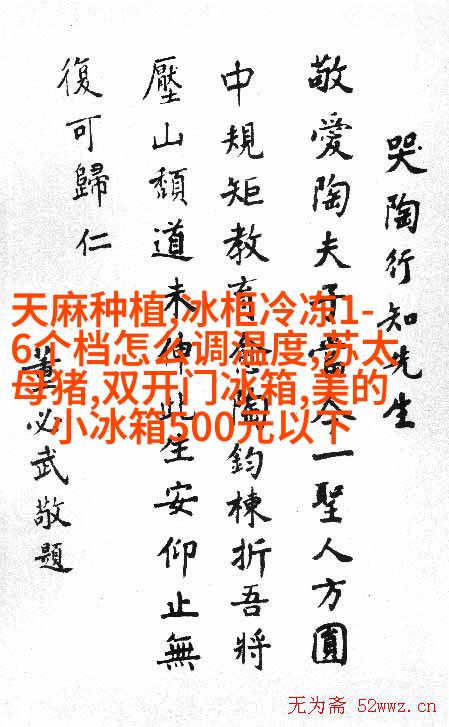 哭陶行知先生
敬愛陶夫子當今一聖人方圓
中規矩教育陶鈞棟折吾將
壓山頹道未伸此生安仰止無
復可歸仁
董必武敬題
天麻种植,冰柜冷冻1-
6个档怎么调温度,苏太
母猪,双开门冰箱,美的
小冰箱500元以下
无为斋 52wwz.cn